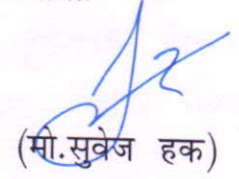 (मो.सुवेज हक)